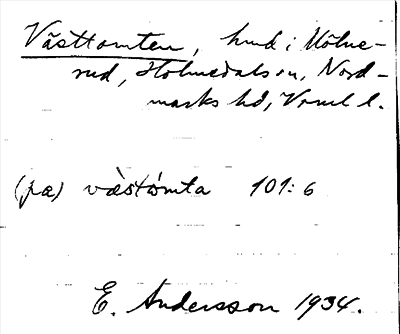 Västtomten, hmd i Mölne-
rud, Holmedals sn, Nord-
marks hd, Vrml l.
(pa) västòmta 101:6
E. Andersson 1934.